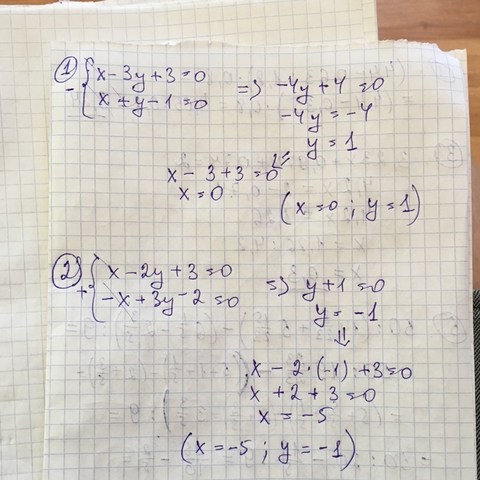 ① { x-3y+3=0
- { x+y-1=0 => -4y+4=0
-4y=-4
y=1
x-3+3=0
x=0
(x=0; y=1)
② { x-2y+3=0
+ { -x+3y-2=0 => y+1=0
y=-1
⇓
x-2·(-1)+3=0
x+2+3=0
x=-5
(x=-5; y=-1)